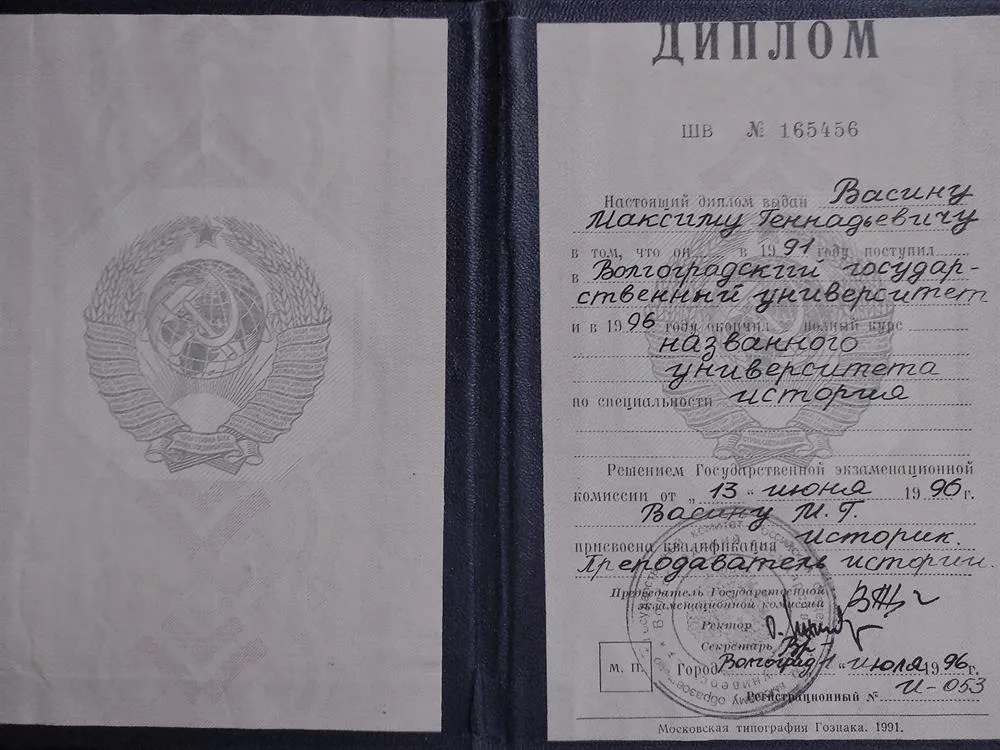 ДИПЛОМ
ШВ № 165456
Настоящий диплом выдан Васину
Максиму Геннадьевичу
в том, что он в 1991 году поступил
в Волгоградский государ-
ственный университет
и в 1996 году окончил полный курс
названного
университета
по специальности история
Решением Государственной экзаменационной
комиссии от „13“ июня 1996 г.
Васину М. Г.
присвоена квалификация историк.
Преподаватель истории.
Председатель Государственной
экзаменационной комиссии
Ректор
Секретарь
М. П. Город Волгоград 1 „ июля 1996 г.
Регистрационный № И-053
Московская типография Гознака. 1991.